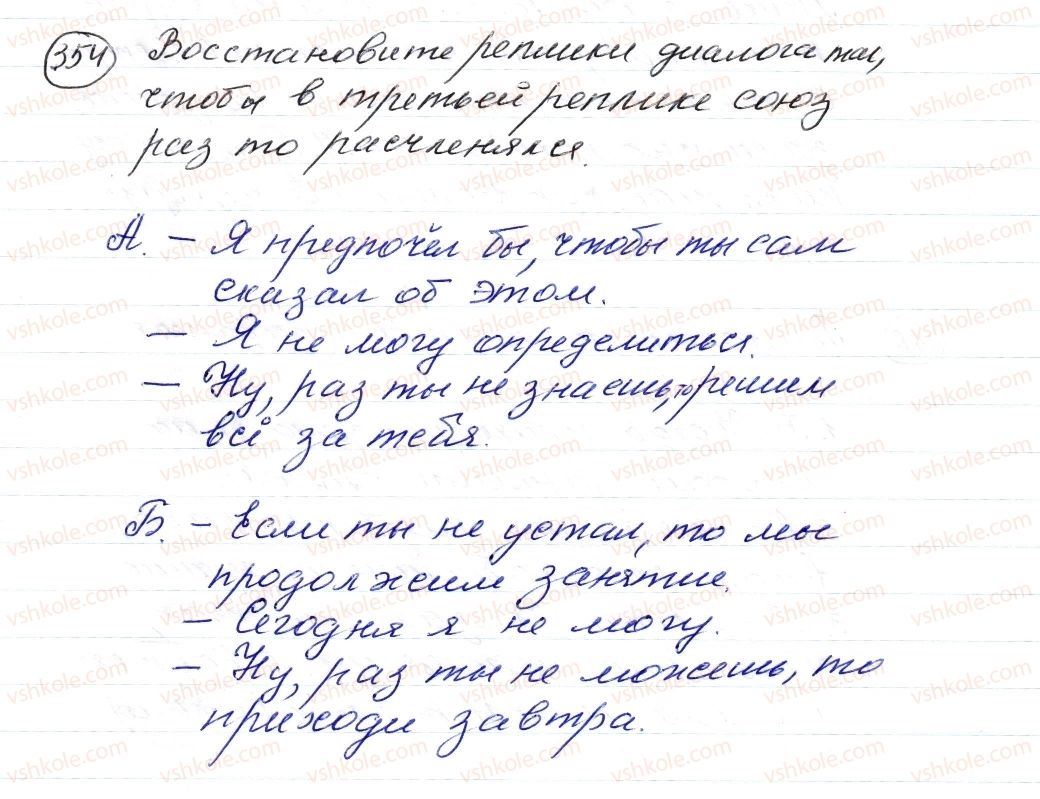 354 Восстановите реплики диалога так,
чтобы в третьей реплике союз
раз то расчленялся.
А. – Я предпочёл бы, чтобы ты сам
сказал об этом.
– Я не могу определиться.
– Ну, раз ты не знаешь, то решим
всё за тебя.
Б. – Если ты не устал, то мы
продолжим занятие.
– Сегодня я не могу.
– Ну, раз ты не можешь, то
приходи завтра.
vshkole.com